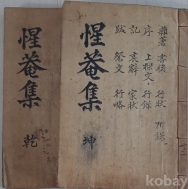 雜著 書牘 行狀 附錄
序 上樑文 行錄
記 哀辭 家狀
跋 祭文 行略
惺菴集 坤
惺菴集 乾
kobay